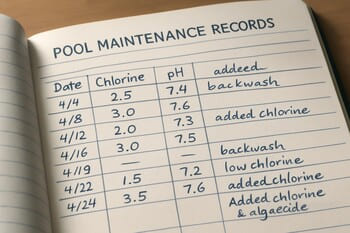 POOL MAINTENANCE RECORDS
Date Chlorine pH addeed
4/4 2.5 7.4 backwash
4/8 3.0 7.6
4/12 2.0 7.3 added chlorine
4/16 3.0 7.5
4/19 — — backwash
4/22 1.5 7.2 low chlorine
4/24 3.5 7.6 added chlorine
Added chlorine
& algaecide